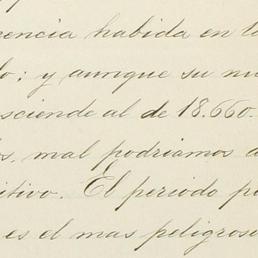 rencia habida en la
lo; y aunque su nu
sciende al de 18.660.
os, mal podriamos a
itivo. El periodo pe
es el mas peligroso